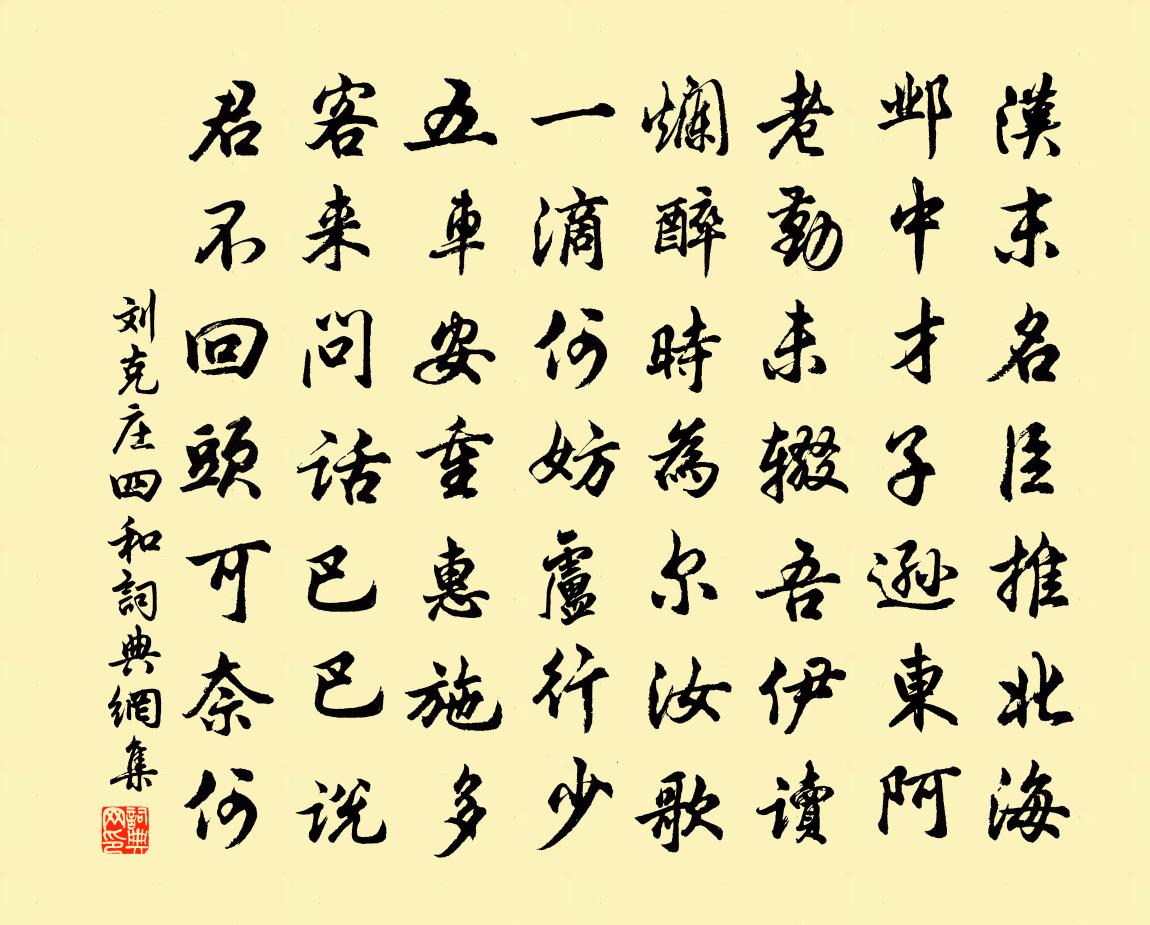 漢末名臣推北海
邺中才子遜東阿
老勤未辍吾伊讀
爛醉時為尔汝歌
一滴何妨盧行少
五車安重惠施多
客来問話巴巴説
君不回頭可奈何
刘克庄四和詞典網集
詞典网印